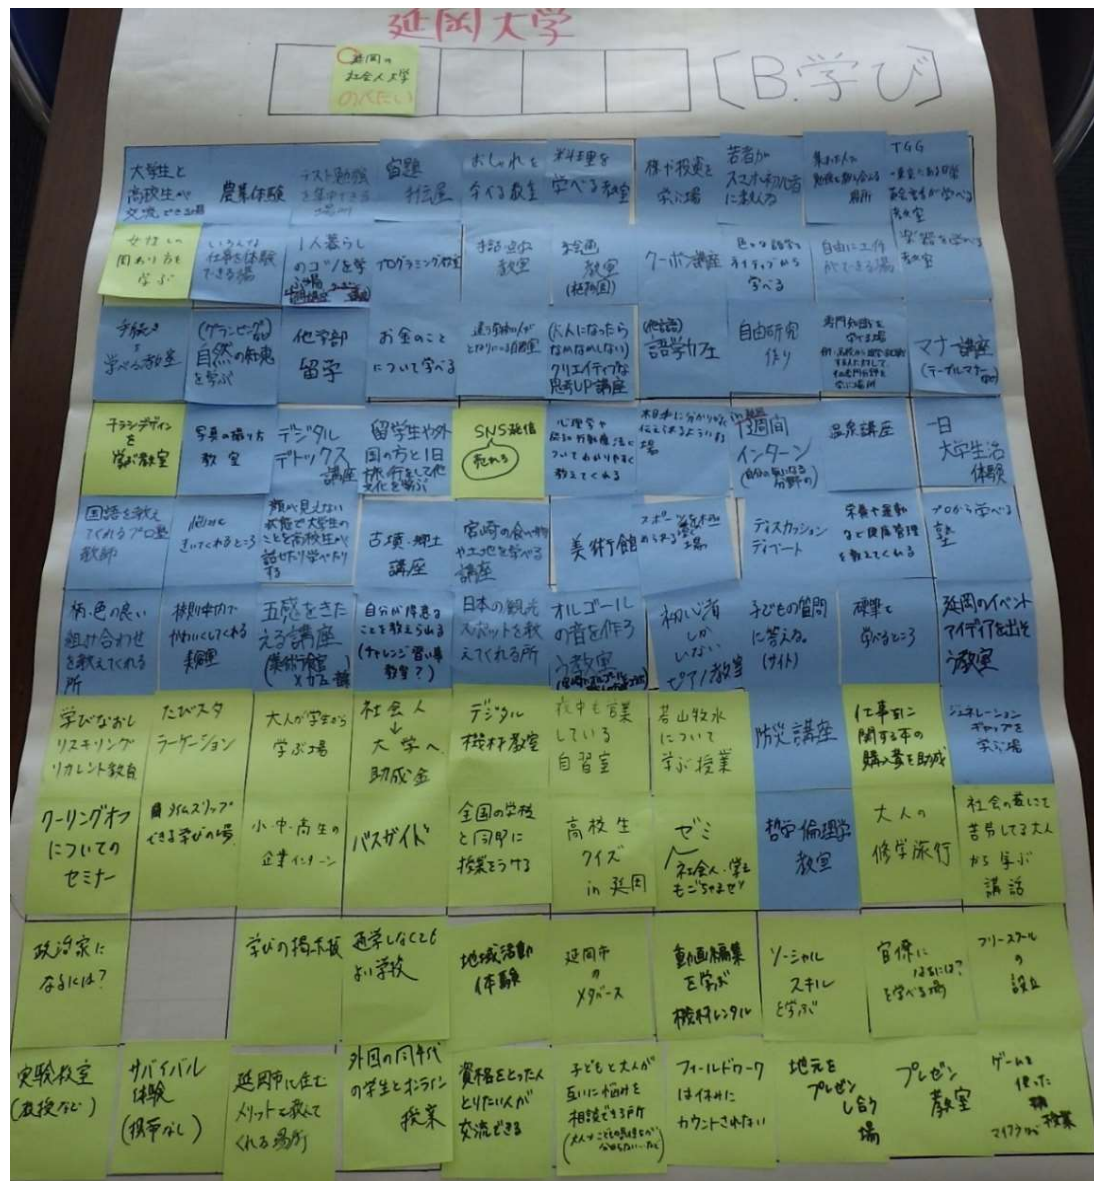 延岡大学
延岡の
社会人大学
〔B.学び〕
大学生と
高校生が
交流できる場
農業体験
テスト勉強
を集中できる
場所
宿題
おしゃれを
教室
料理を
学べる教室
株や投資を
学ぶ場
若者が
スマホ初心者
に教える
場所
TGG
教室
女性との
関わり方を
学ぶ
いろんな
仕事を体験
できる場
1人暮らし
のコツを学
ぶ場
プログラミング教室
教室
絵画
教室
クーポン講座
学べる
自由に工作
ができる場
楽器を学べる
教室
手続き
学べる教室
(グランピング)
自然の知恵
を学ぶ
他学部
留学
お金のこと
について学べる
(大人になったら
なめなめしない)
クリエイティブな
思考UP講座
(他言語)
語学カフェ
自由研究
作り
専門知識を
学べる場
マナー講座
(テーブルマナーなど)
チラシデザイン
を
学ぶ教室
写真の撮り方
教室
デジタル
デトックス
講座
留学生や外
国の方と1日
旅行をして他
文化を学ぶ
SNS発信
売れる
心理学や
認知行動療法に
ついてわかりやすく
教えてくれる
伝えられるようにする
場
1週間
インターン
(自分の気になる
分野の)
温泉講座
一日
大学生活
体験
国語を教え
てくれるプロ塾
教師
悩みを
きいてくれるところ
顔が見えない
状態で大学生の
ことを高校生が
話せたり学べたり
する
古墳・郷土
講座
宮崎の食べ物
や土地を学べる
講座
美術館
スポーツを
場
ディスカッション
ディベート
栄養や運動
など健康管理
を教えてくれる
プロから学べる
塾
柄・色の良い
組み合わせ
を教えてくれる
所
校則内で
かわいくしてくれる
美容室
五感をきた
える講座
自分が得意な
ことを教えられる
(チャレンジ習い事
教室?)
日本の観光
スポットを教
えてくれる所
オルゴール
の音を作ろ
う教室
初心者
しか
いない
ピアノ教室
子どもの質問
に答える。
(サイト)
硬筆を
学べるところ
延岡のイベント
アイディアを出そ
う教室
学びなおし
リスキリング
リカレント教育
たびスタ
ラーケーション
大人が学生から
学ぶ場
社会人
↓
大学へ
助成金
デジタル
機材教室
夜中も営業
している
自習室
若山牧水
について
学ぶ授業
防災講座
仕事に
関する本の
購入費を助成
ジェネレーション
ギャップを
学ぶ場
クーリングオフ
についての
セミナー
タイムスリップ
できる学びの場
小・中・高生の
企業インターン
バスガイド
全国の学校
と同時に
授業をうける
高校生
クイズ
in 延岡
ゼミ
社会人・学生
もごちゃまぜ
哲学・倫理学
教室
大人の
修学旅行
社会の荒にて
苦労してる大人
から学ぶ
講話
政治家に
なるには?
学びの掲示板
通学しなくても
よい学校
地域活動
体験
延岡市
の
メタバース
動画編集
を学ぶ
機材レンタル
ソーシャル
スキル
を学ぶ
官僚に
なるには?
を学べる場
フリースクール
の
設立
実験教室
(教授など)
サバイバル
体験
(携帯なし)
延岡市に住む
メリットを教えて
くれる場所
外国の同年代
の学生とオンライン
授業
資格をとった人
とりたい人が
交流できる
子どもと大人が
互いに悩みを
相談できる所
フィールドワーク
は休みに
カウントされない
地元を
プレゼン
し合う
場
プレゼン
教室
ゲームを
使った
授業
マイクラなど